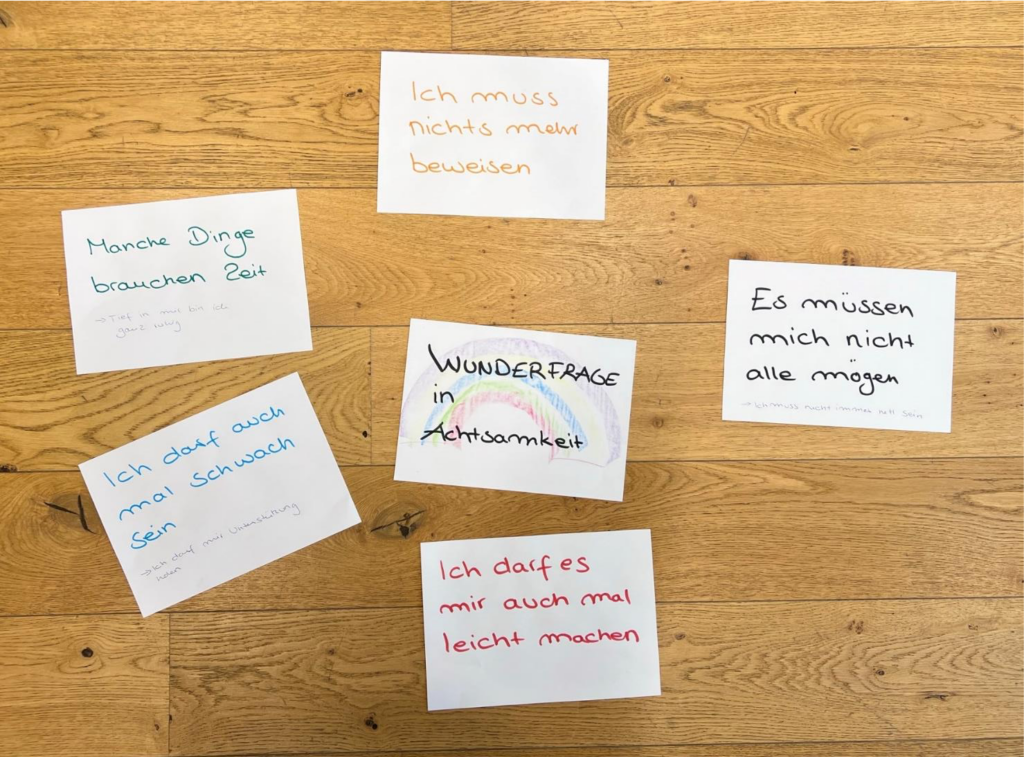 Ich muss
nichts mehr
beweisen
Manche Dinge
brauchen Zeit
→ Tief in mir bin ich
ganz ruhig
Es müssen
mich nicht
alle mögen
→ Ich muss nicht immer nett sein
WUNDERFRAGE
in
Achtsamkeit
Ich darf auch
mal schwach
sein
→ Ich darf mir Unterstützung
holen
Ich darf es
mir auch mal
leicht machen